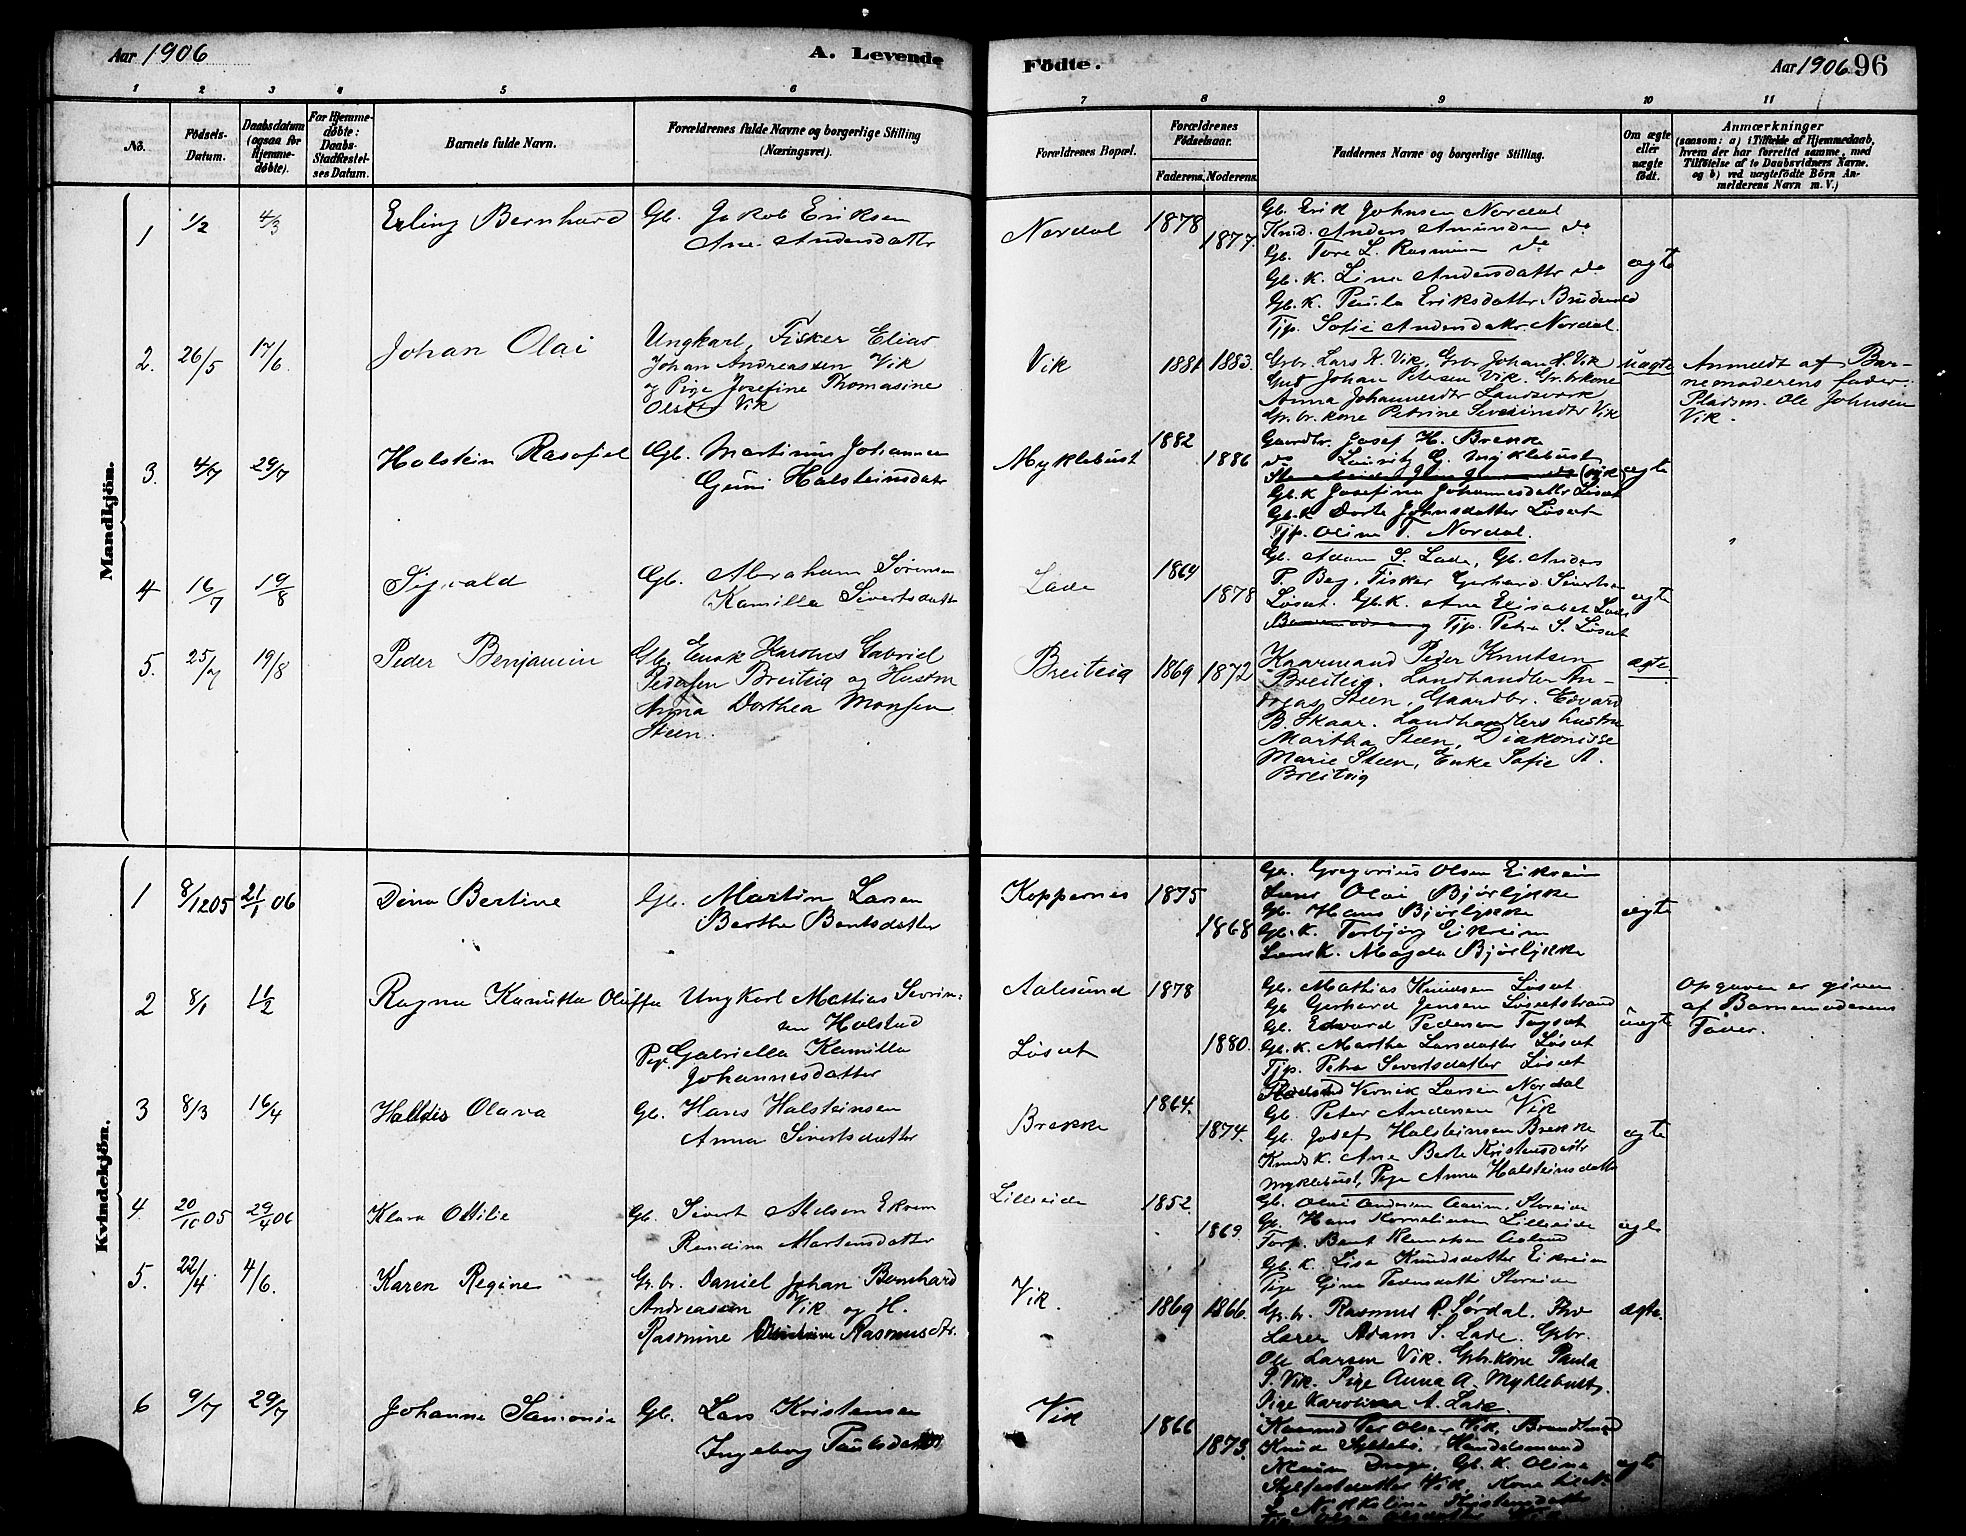 Aar 1906
A. Levende
Födte.
Aar 1906
96
1 2 3 4 5 6
7 8 9 10 11
No.
Födsels-
Datum.
Daabsdatum
(ogsaa for
Hjemme-
döbte).
For Hjemme-
döbte:
Daabs-
Stadfæstel-
ses Datum.
Barnets fulde Navn.
Forældrenes fulde Navne og borgerlige Stilling
(Næringsvei).
Forældrenes Bopæl.
Forældrenes
Födselsaar.
Faderens. Moderens.
Faddernes Navne og borgerlige Stilling.
Om ægte
eller
uægte
födt.
Anmærkninger
(saasom: a) i Tilfælde af Hjemmedaab,
hvem der har forrettet samme, med
Tilföielse af to Daabsvidners Navne.
og b) ved uægtefödte Börn An-
melderens Navn m. V.)
Mandkjön.
1 1/2 4/3 Erling Bernhard
Gb. Jakob Eriksen
Ane Andersdatter
Nordal 1878 1877.
Gb. Erik Johnsen Nordal
Anders Amundsen do
Gb. Tore L. Rasmussen do
Gb. K. Lina Andersdatter do
Gb. K. Paula Eriksdatter
Tjp. Sofie Andersdatter Nordal.
ægte
2. 26/5 17/6 Johan Olai
Ungkarl, Fisker Elias
Johan Andreassen Vik
og Pige Josefine Thomasine
Olsdtr Vik
Vik 1881 1883.
Grbr. Lars K. Vik, Grbr. Johan H. Vik
Johan Petersen Vik. Gr.br.kone
Anna Johannesdtr Landsverk
Gr.br. kone Petrine Severinsdtr Vik
uægte
Anmeldt af Bar-
nemoderens fader
Pladsm. Ole Johnsen
Vik.
3. 4/7 29/7 Holstein Rasofiel
Gb. Martinus Johansen
Guni Holsteinsdatr
Myklebust 1882 1886
Gaardbr. Josef H. Brekke
do Lauritz G. Myklebust
Gb. K Josefina Johannesdatter Løset
Gb. K Dorte Johnsdatter Løset
Tjp. Olina T. Nordal.
ægte
4 16/7 19/8 Sigvald
Gb. Abraham Sørensen
Kamilla Sivertsdatter
Lade 1864 1878
Gb. Adam S. Lade, Gb. Anders
P. Bag, Fisker Gerhard Sivertsen
Løset. Gb. K. Ane Elisabet Lade
Tjp. Petra S. Løset
ægte
5. 25/7 19/8 Peder Benjamin
Gb. Enok Gabriel
Pedersen Breiteig og Hustru
Anna Dorthea Monsen
Steen.
Breiteig 1869 1872
Kaarmand Peder Knutsen
Breiteig. Landhandler An-
dreas Steen, Gaardbr. Edvard
B. Skaar. Landhandlers hustru
Martha Steen, Diakonisse
Marie Steen, Enke Sofie A.
Breiteig
ægte
Kvindekjön.
1 8/12 05 21/1 06 Dina Bertine
Gb. Martin Larsen
Berthe Bentsdatter
Koppernes 1875 1868
Gb. Gregorius Olsen Eikrem
Olai Bjørlykke
Gb. Hans Bjørlykke
Gb. K. Torbjørg Eikrem
Magda Bjørlykke
ægte
2 8/1 11/2 Ragna Kamilla Oluffa
Ungkarl Mathias Sevrin-
sen Holstad
Pige Gabriella Kamilla
Johannesdatter
Aalesund 1878
Løset 1880.
Gb. Mathias Knudsen Løset
Gb Gerhard Jensen Løsetstrand
Gb. Edvard Pedersen Togset
Gb. K. Martha Larsdatter Løset
Tjp. Petra Sivertsdatter Løset
uægte
Opgaven er given
af Barnemoderens
Fader.
3 8/3 16/4 Halldis Olava
Gb. Hans Holsteinsen
Anna Sivertsdatter
Brekke 1864. 1874.
Vernik Larsen Nordal
Gb. Peter Andersen Vik
Gb. Josef Holsteinsen Brekke
K. Ane Berte Kristensdatr
Myklebust, Pige Anna Holsteinsdatter
ægte
4. 20/10 05 29/4 06 Klara Ottilie
Gb. Sivert Nilsen Ekrem
Randina Martensdatter
Lilleeide 1852. 1869.
Gb. Olai Andersen Storeide
Gb. Hans Korneliusen Lilleeide
Torp. Bent Klemetsen
Gb. K. Lisa Knudsdatter Eikrem
Pige Gina Pedersdatter Storeide
ægte
5. 22/4 4/6. Karen Regine
Gr.br. Daniel Johan Bernhard
Andreassen Vik og H.
Rasmine Rasmusdtr.
Vik. 1869 1866.
Gr.br. Rasmus P. Sørdal.
Lærer Adam S. Lade. Grbr.
Ole Larsen Vik. Grbr.kone Paula
P. Vik. Pige Anna A. Myklebust,
Pige Karolina A. Lade.
ægte.
6 9/7 29/7 Johanne Samonie
Gb. Lars Kristensen
Ingeborg Paulsdatter
Vik 1866 1873.
Kaarmand Per Olsen Vik,
Knud Handelsmand
Gb. K. Olina
Vik,
ægte